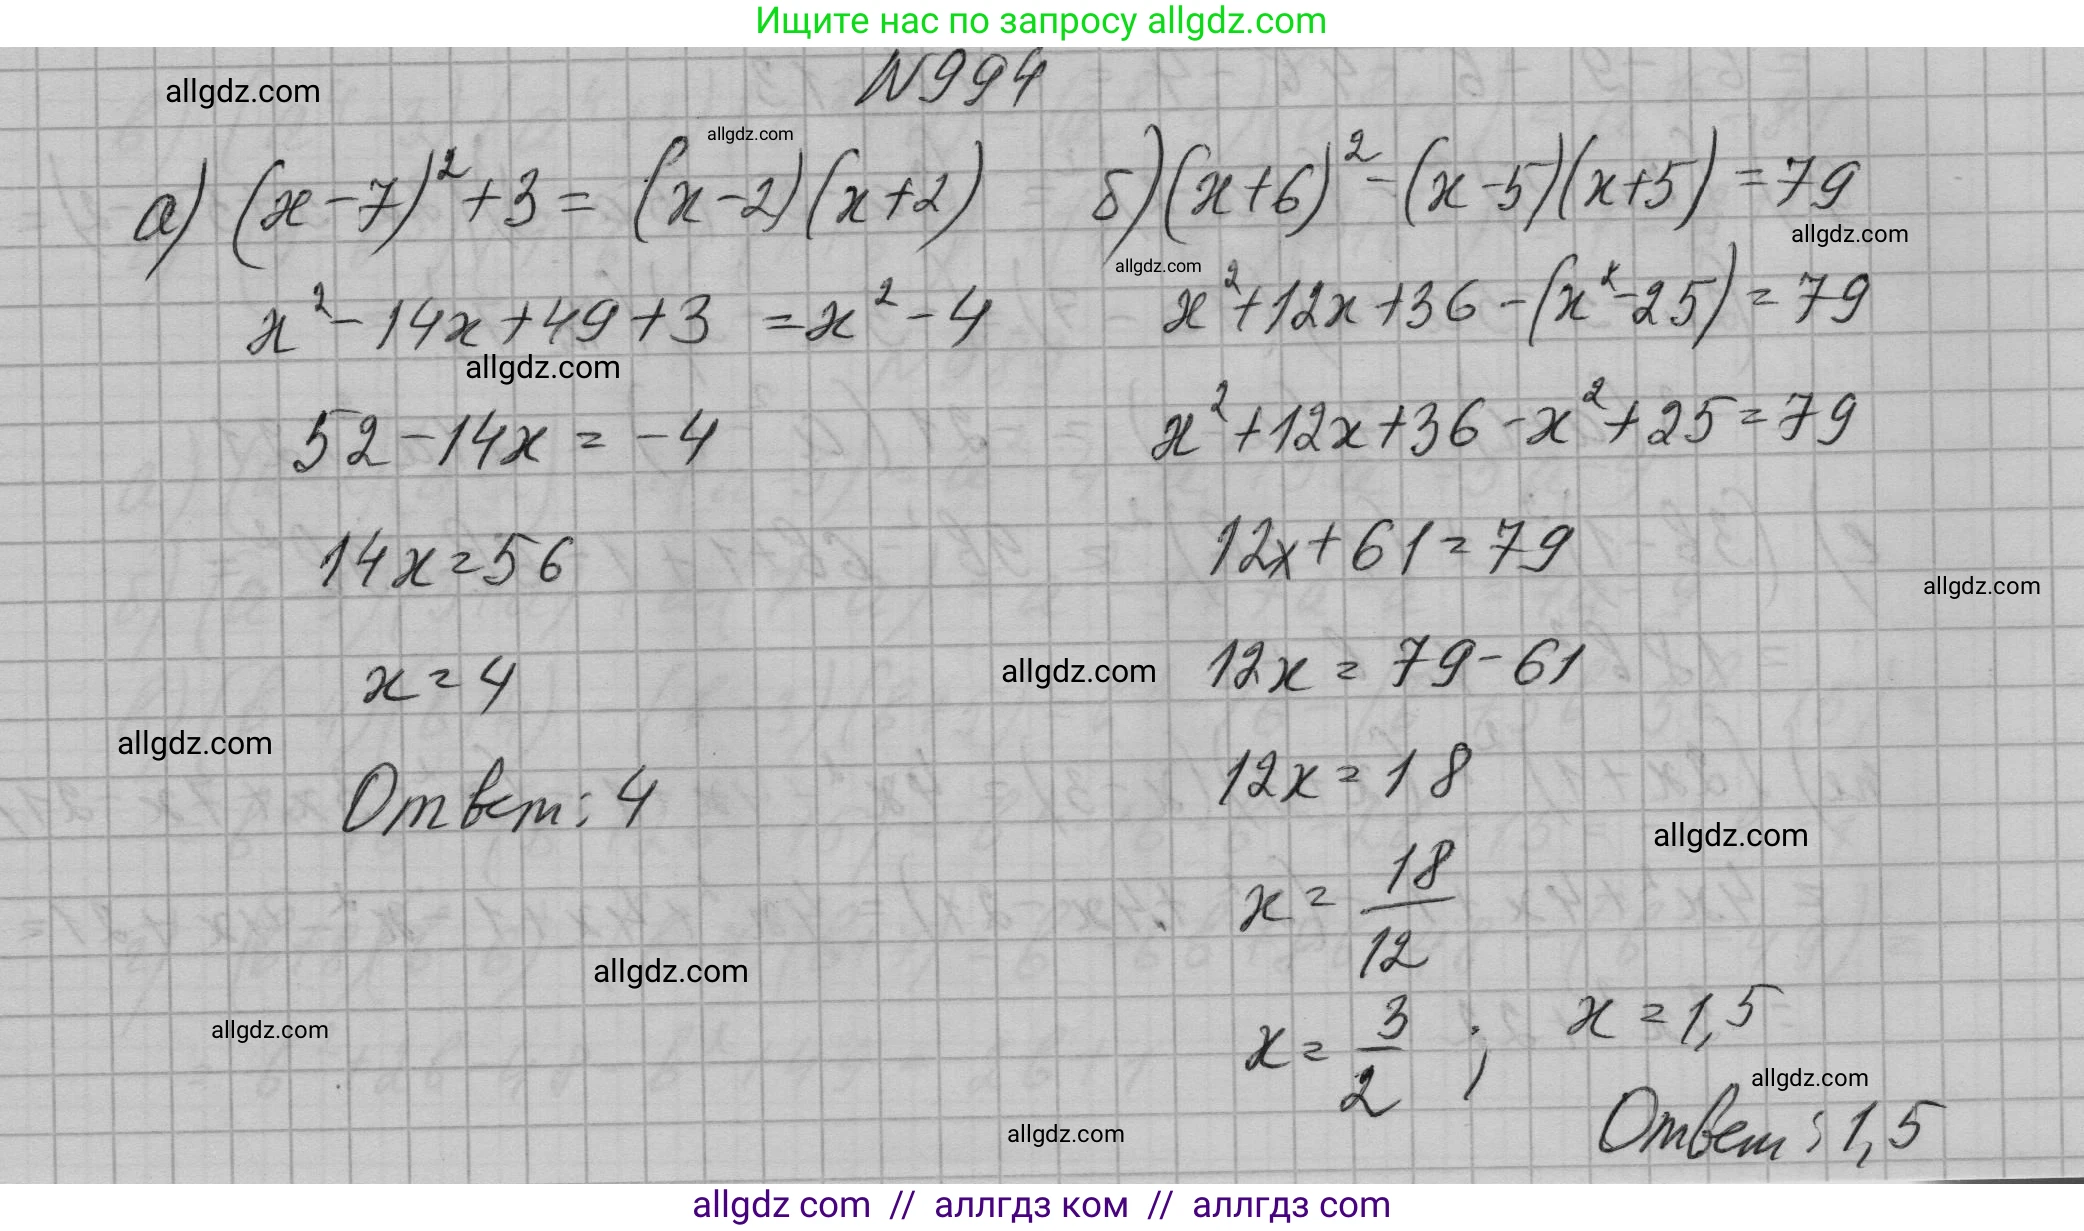 Ищите нас по запросу allgdz.com
N994
allgdz.com
allgdz.com
а) (x-7)² + 3 = (x-2)(x+2)
x² - 14x + 49 + 3 = x² - 4
allgdz.com
52 - 14x = -4
14x = 56
x = 4
allgdz.com
Ответ: 4
allgdz.com
allgdz.com
б) (x+6)² - (x-5)(x+5) = 79
allgdz.com
allgdz.com
x² + 12x + 36 - (x² - 25) = 79
x² + 12x + 36 - x² + 25 = 79
12x + 61 = 79
allgdz.com
allgdz.com
12x = 79 - 61
12x = 18
allgdz.com
x = 18/12
x = 3/2 ; x = 1,5
allgdz.com
allgdz.com
Ответ: 1,5
allgdz com // аллгдз ком // аллгдз com